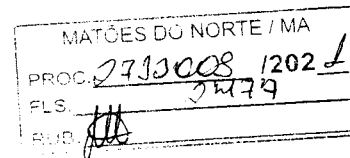 MATÕES DO NORTE / MA
PROC. 2733008 /2021
FLS. 2477
RUB.